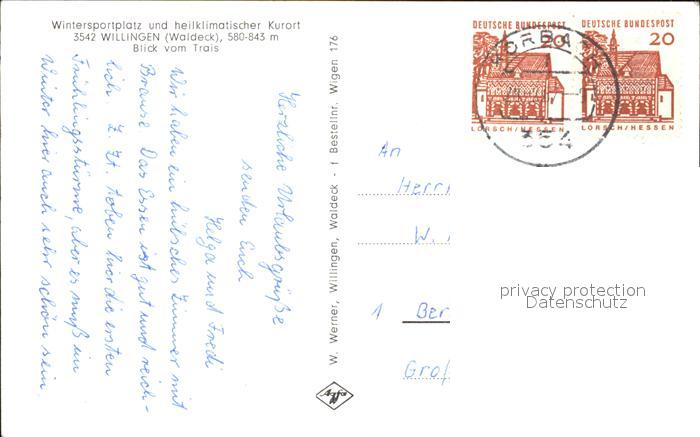 Wintersportplatz und heilklimatischer Kurort
3542 WILLINGEN (Waldeck), 580-843 m
Blick vom Trais
Herzliche Urlaubsgrüße
senden Euch
Helga und Fredi
Wir haben ein hübsches Zimmer mit
Brause. Das Essen ist gut und reich-
lich. Z. Zt. toben hier die ersten
Frühlingsstürme, aber es muß im
Winter hier auch sehr schön sein.
W. Werner, Willingen, Waldeck - 1 Bestellnr. Wigen 176
Agfa
DEUTSCHE BUNDESPOST
20
LORSCH/HESSEN
DEUTSCHE BUNDESPOST
20
LORSCH/HESSEN
KORBA
354
An
Herr
W.
1 Ber
Gro
privacy protection
Datenschutz